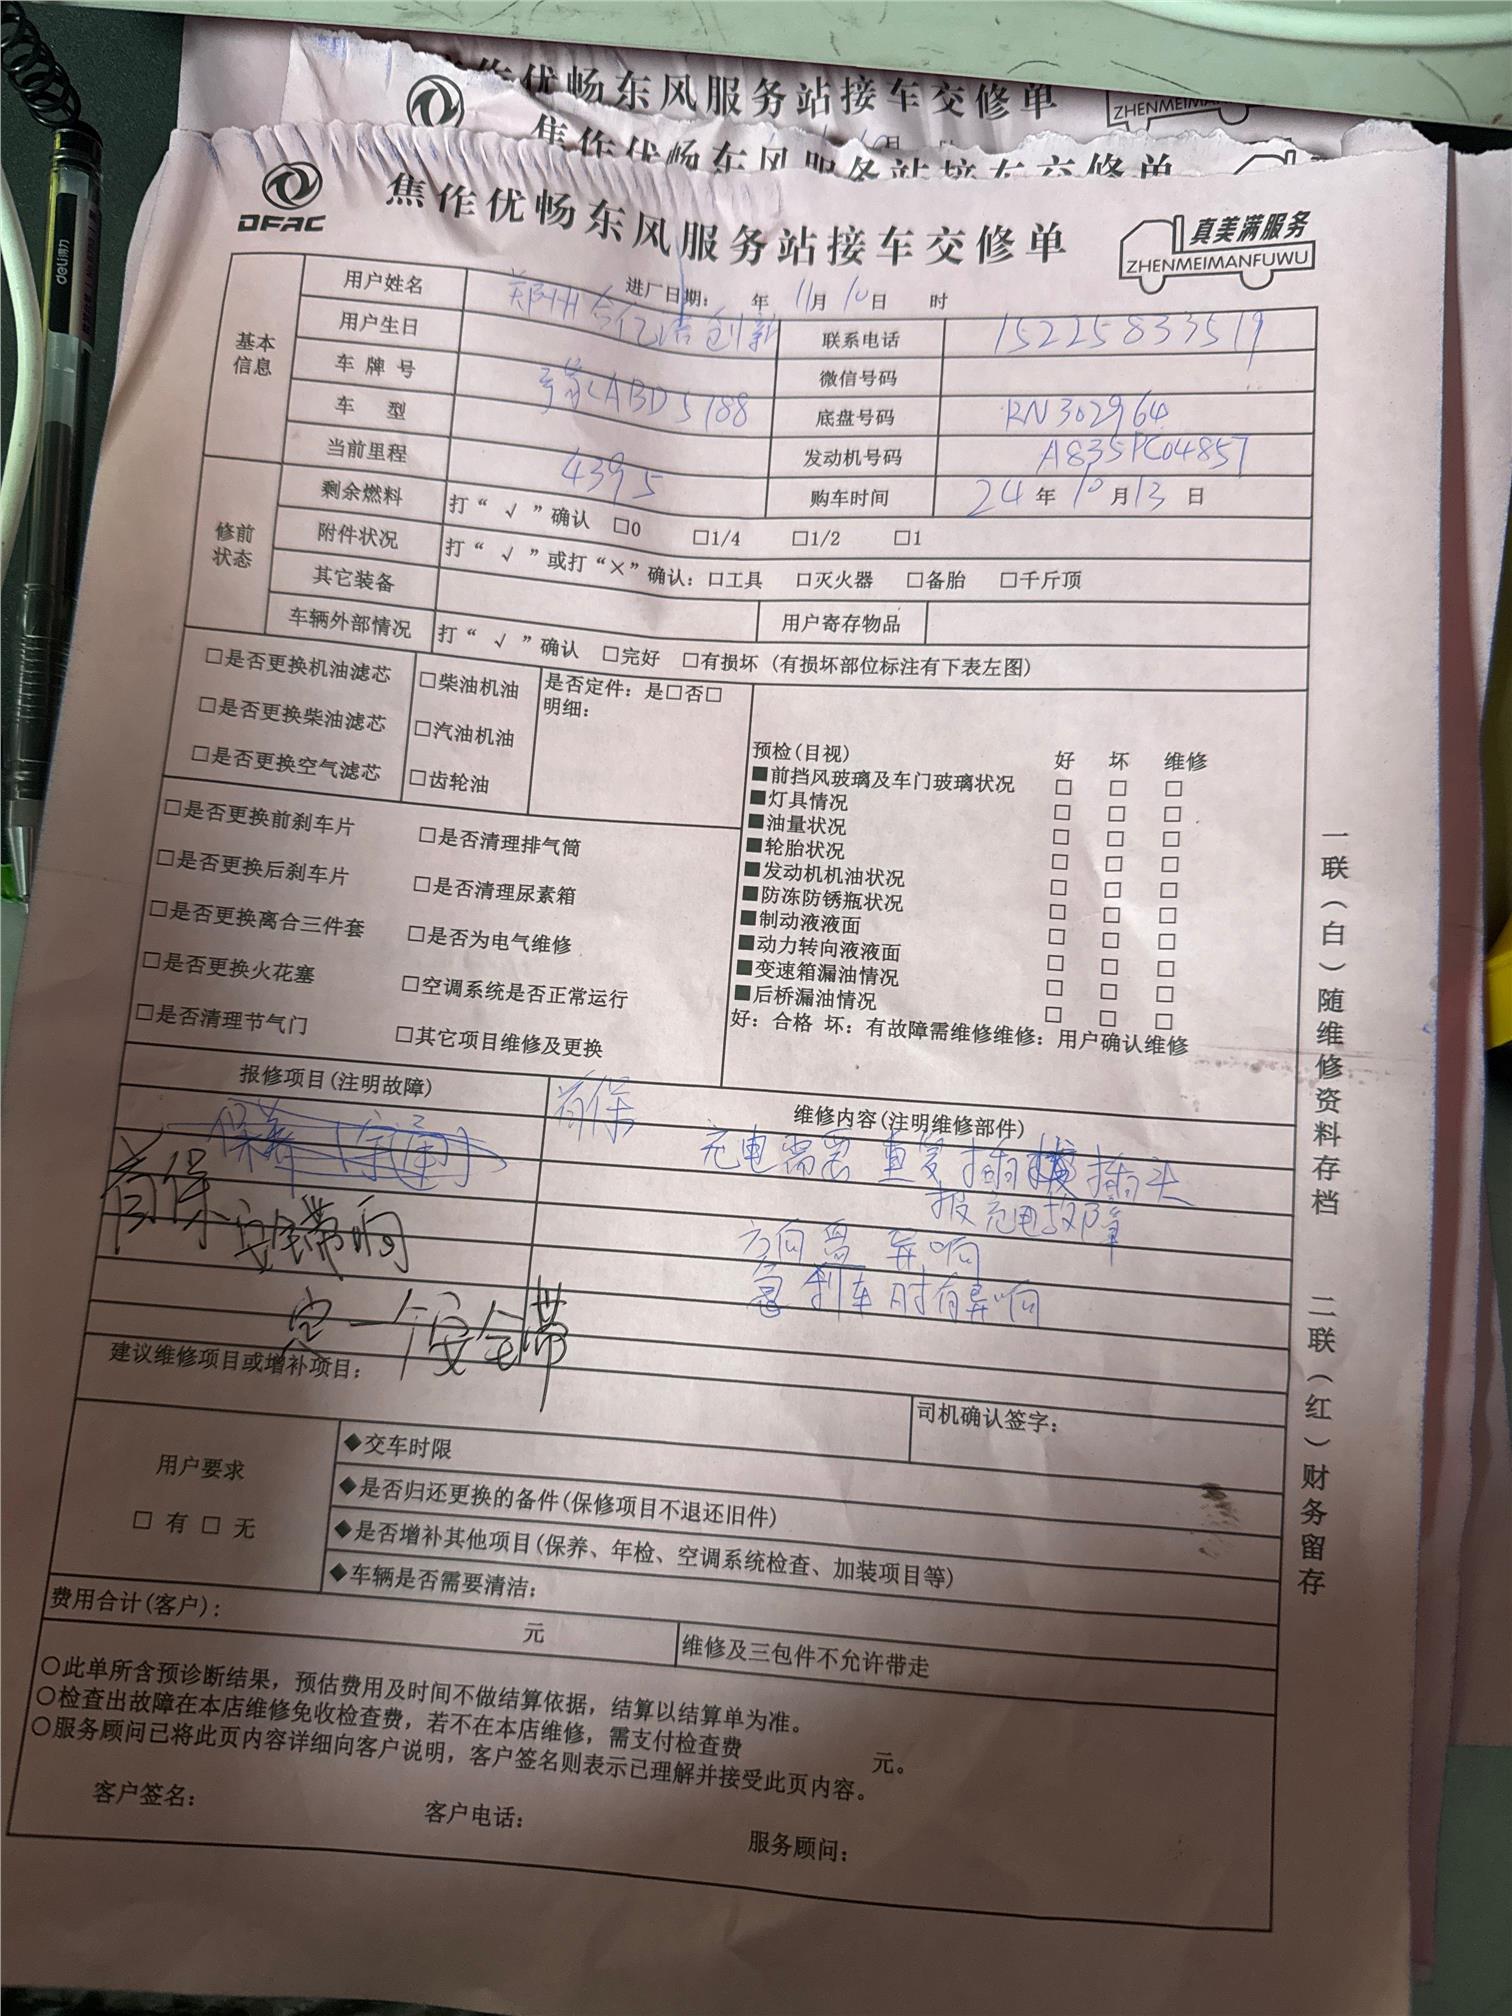 焦作优畅东风服务站接车交修单
ZHENMEIMANFUWU
焦作优畅东风服务站接车交修单
DFAC
焦作优畅东风服务站接车交修单
真美满服务
ZHENMEIMANFUWU
deli得力
进厂日期: 年 11月 10日 时
基本信息
用户姓名 郑州 创新
用户生日 联系电话 15225833519
车牌号 ABD5188 微信号码
车 型 底盘号码 RN302964
当前里程 4395 发动机号码 A835PC04857
修前状态
剩余燃料 打“√”确认 □0 □1/4 □1/2 □1 购车时间 24年10月13日
附件状况 打“√”或打“×”确认: □工具 □灭火器 □备胎 □千斤顶
其它装备 用户寄存物品
车辆外部情况 打“√”确认 □完好 □有损坏 (有损坏部位标注有下表左图)
□是否更换机油滤芯 □柴油机油 是否定件: 是□否□
□是否更换柴油滤芯 □汽油机油 明细:
□是否更换空气滤芯 □齿轮油
预检(目视) 好 坏 维修
■前挡风玻璃及车门玻璃状况 □ □ □
■灯具情况 □ □ □
■油量状况 □ □ □
■轮胎状况 □ □ □
■发动机机油状况 □ □ □
■防冻防锈瓶状况 □ □ □
■制动液液面 □ □ □
■动力转向液液面 □ □ □
■变速箱漏油情况 □ □ □
■后桥漏油情况 □ □ □
好: 合格 坏: 有故障需维修维修: 用户确认维修
□是否更换前刹车片 □是否清理排气筒
□是否更换后刹车片 □是否清理尿素箱
□是否更换离合三件套 □是否为电气维修
□是否更换火花塞 □空调系统是否正常运行
□是否清理节气门 □其它项目维修及更换
报修项目(注明故障) 首保 维修内容(注明维修部件)
保养
充电需要重复插拔插头
报充电故障
首保 安全带响
方向盘异响
急刹车时有异响
定一个安全带
建议维修项目或增补项目:
司机确认签字:
用户要求
□ 有 □ 无
◆交车时限
◆是否归还更换的备件(保修项目不退还旧件)
◆是否增补其他项目(保养、年检、空调系统检查、加装项目等)
◆车辆是否需要清洁:
费用合计(客户): 元 维修及三包件不允许带走
○此单所含预诊断结果, 预估费用及时间不做结算依据, 结算以结算单为准。
○检查出故障在本店维修免收检查费, 若不在本店维修, 需支付检查费 元。
○服务顾问已将此页内容详细向客户说明, 客户签名则表示已理解并接受此页内容。
客户签名: 客户电话: 服务顾问:
一联(白)随维修资料存档 二联(红)财务留存